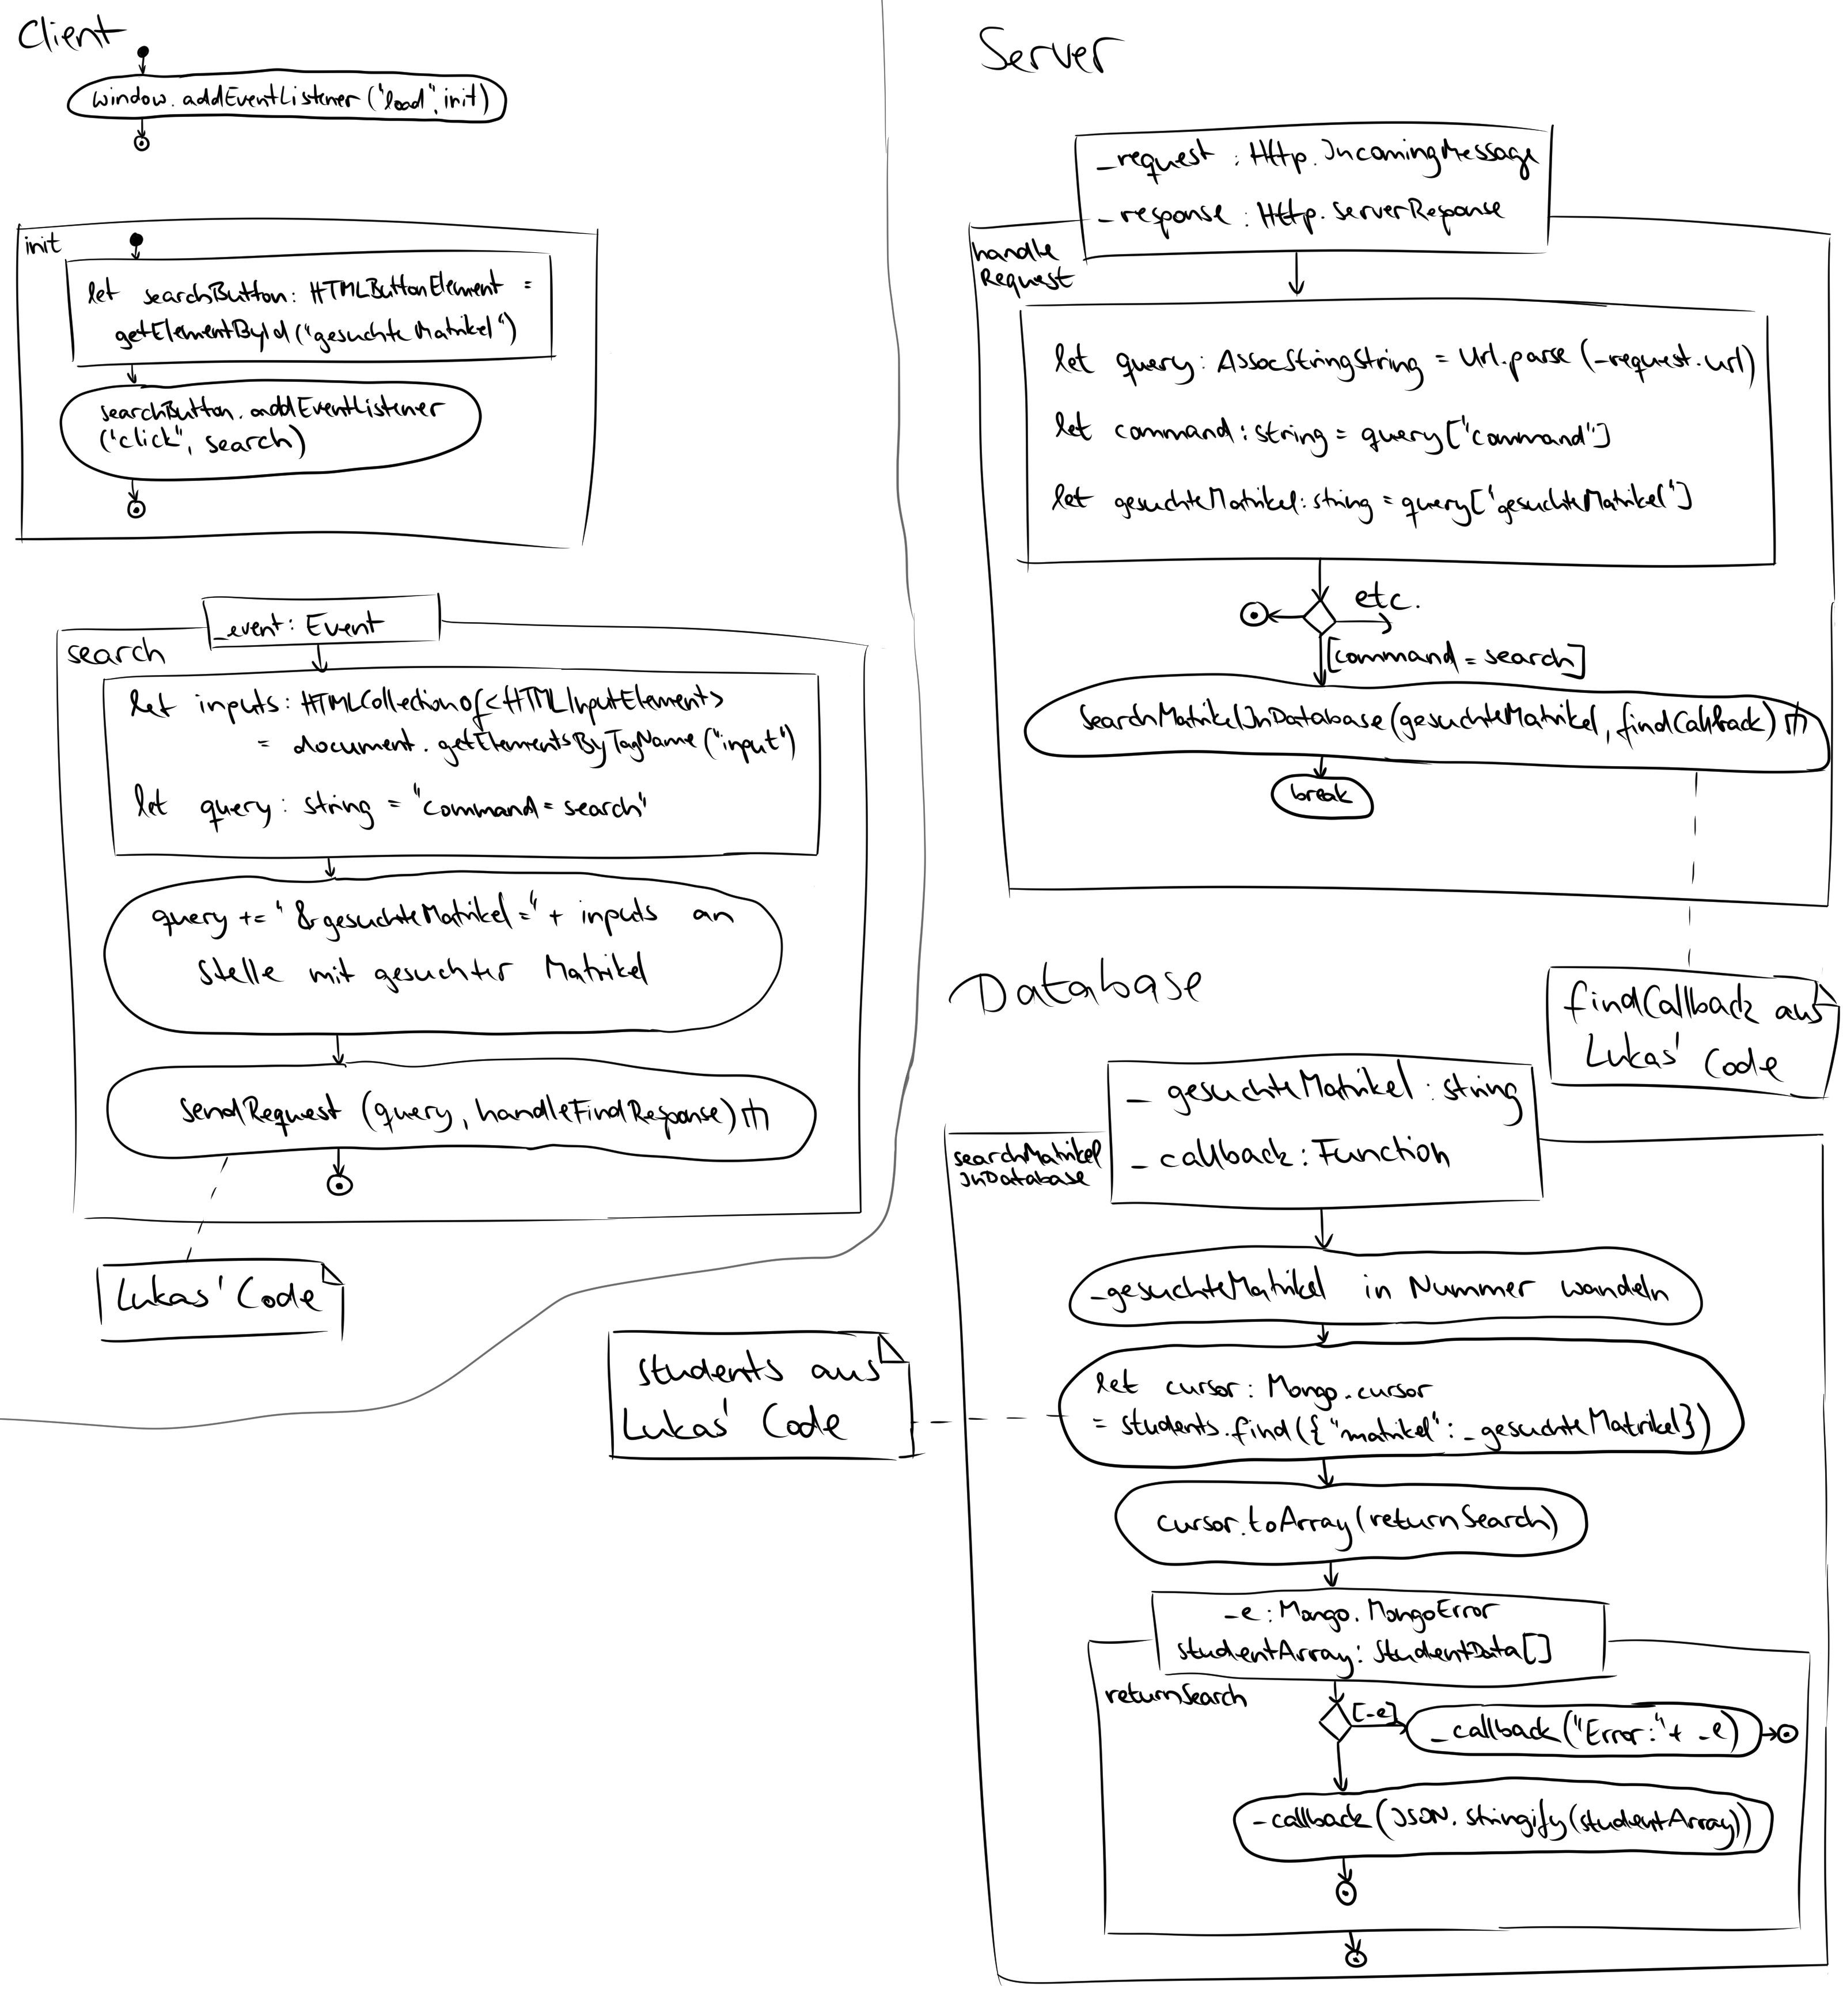 Client
window.addEventListener("load", init)
init
let searchButton: HTMLButtonElement =
getElementById("gesuchteMatrikel")
searchButton.addEventListener
("click", search)
_event: Event
search
let inputs: HTMLCollectionOf<HTMLInputElement>
= document.getElementsByTagName("input")
let query: string = "command=search"
query += "&gesuchteMatrikel=" + inputs an
Stelle mit gesuchter Matrikel
sendRequest (query, handleFindResponse)
Lukas' Code
Server
_request : Http.IncomingMessage
_response : Http.ServerResponse
handle
Request
let query: AssocStringString = Url.parse (_request.url)
let command: string = query["command"]
let gesuchteMatrikel: string = query["gesuchteMatrikel"]
etc.
[command = search]
searchMatrikelInDatabase(gesuchteMatrikel, findCallback)
break
findCallback aus
Lukas' Code
Database
_ gesuchteMatrikel : string
_ callback : Function
searchMatrikel
InDatabase
_gesuchteMatrikel in Nummer wandeln
let cursor: Mongo.cursor
= students.find({"matrikel": _gesuchteMatrikel})
students aus
Lukas' Code
cursor.toArray(returnSearch)
_e : Mongo.MongoError
studentArray: StudentData[]
returnSearch
[_e]
_callback("Error:" + _e)
_callback(JSON.stringify(studentArray))